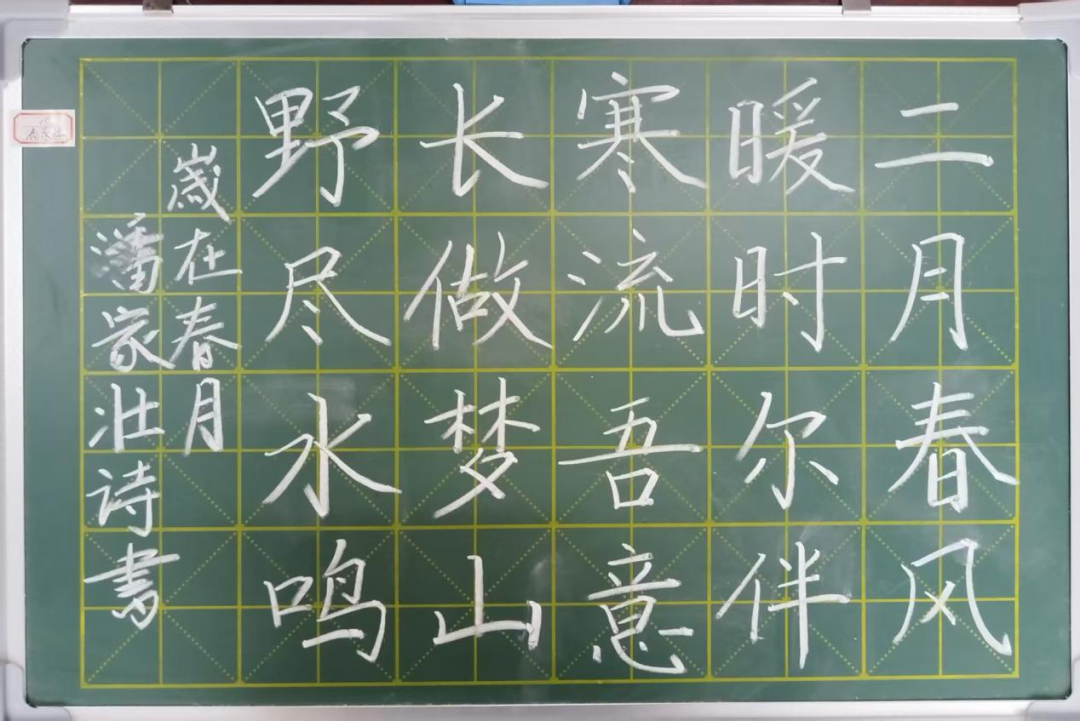 二月春风
暖时尔伴
寒流吾意
长做梦山
野尽水鸣
岁在春月
潘家壮诗书